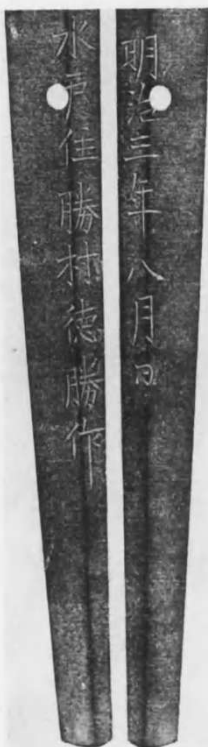 明治三年八月日
水戸住勝村徳勝作